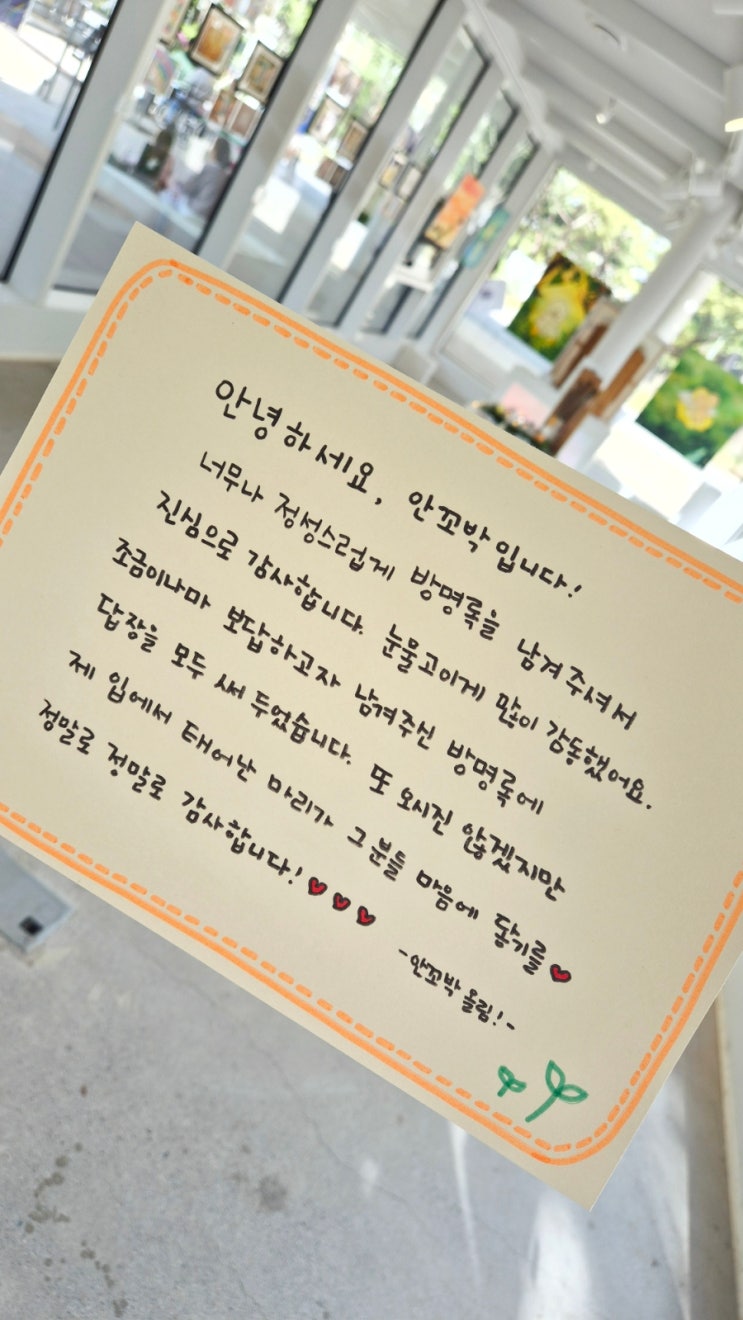 안녕하세요, 안꼬박입니다!
너무나 정성스럽게 방명록을 남겨주셔서
진심으로 감사합니다. 눈물고이게 많이 감동했어요.
조금이나마 보답하고자 남겨주신 방명록에
답장을 모두 써 두었습니다. 또 오시진 않겠지만
제 입에서 태어난 마리가 그분들 마음에 닿기를
정말로 정말로 감사합니다!
-안꼬박 올림!-